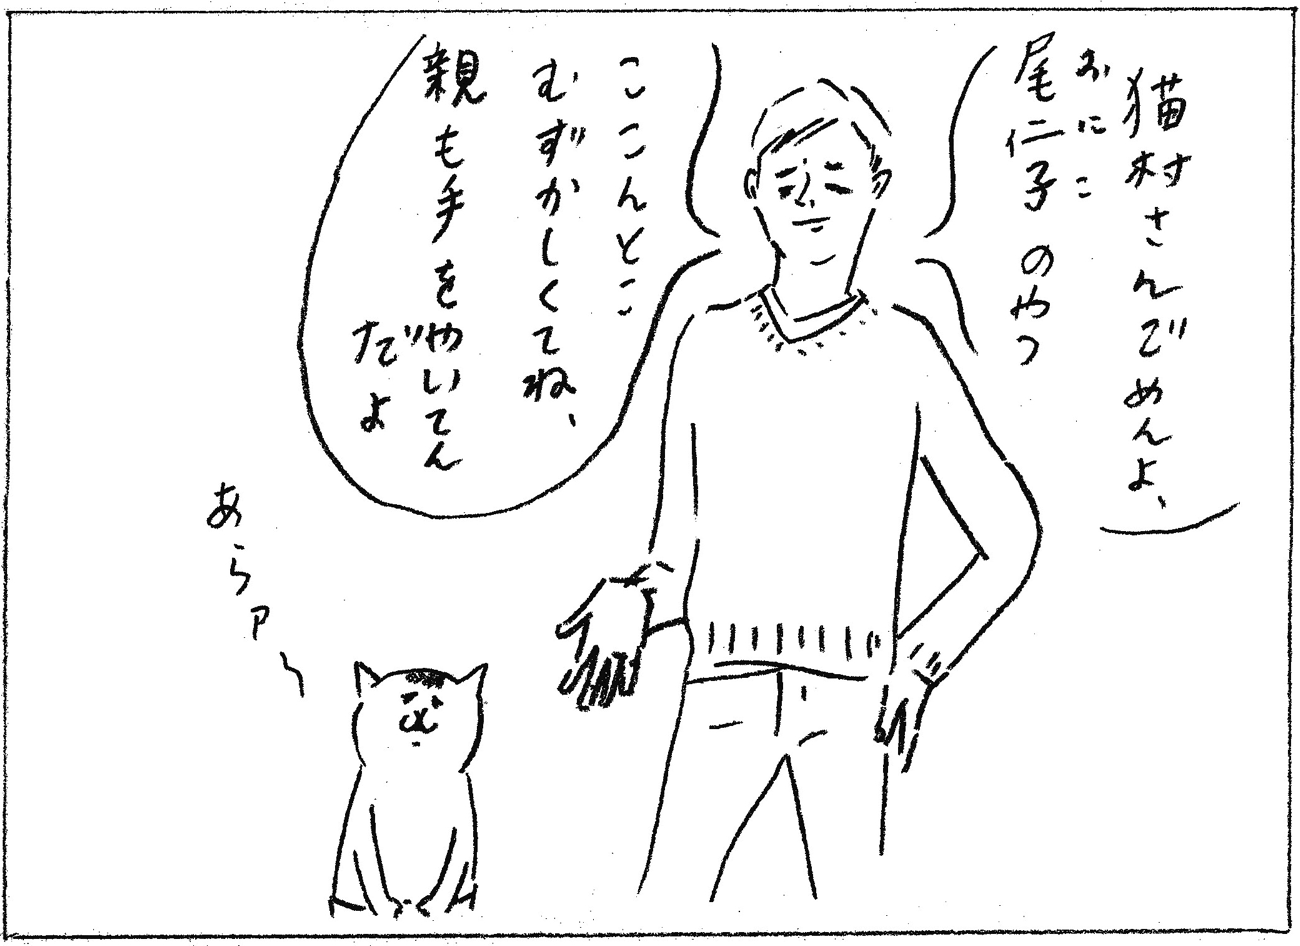 猫村さんごめんよ、
おにこ
尾仁子のやつ
ここんとこ
むずかしくてね、
親も手をやいてん
だよ
あらァ〜